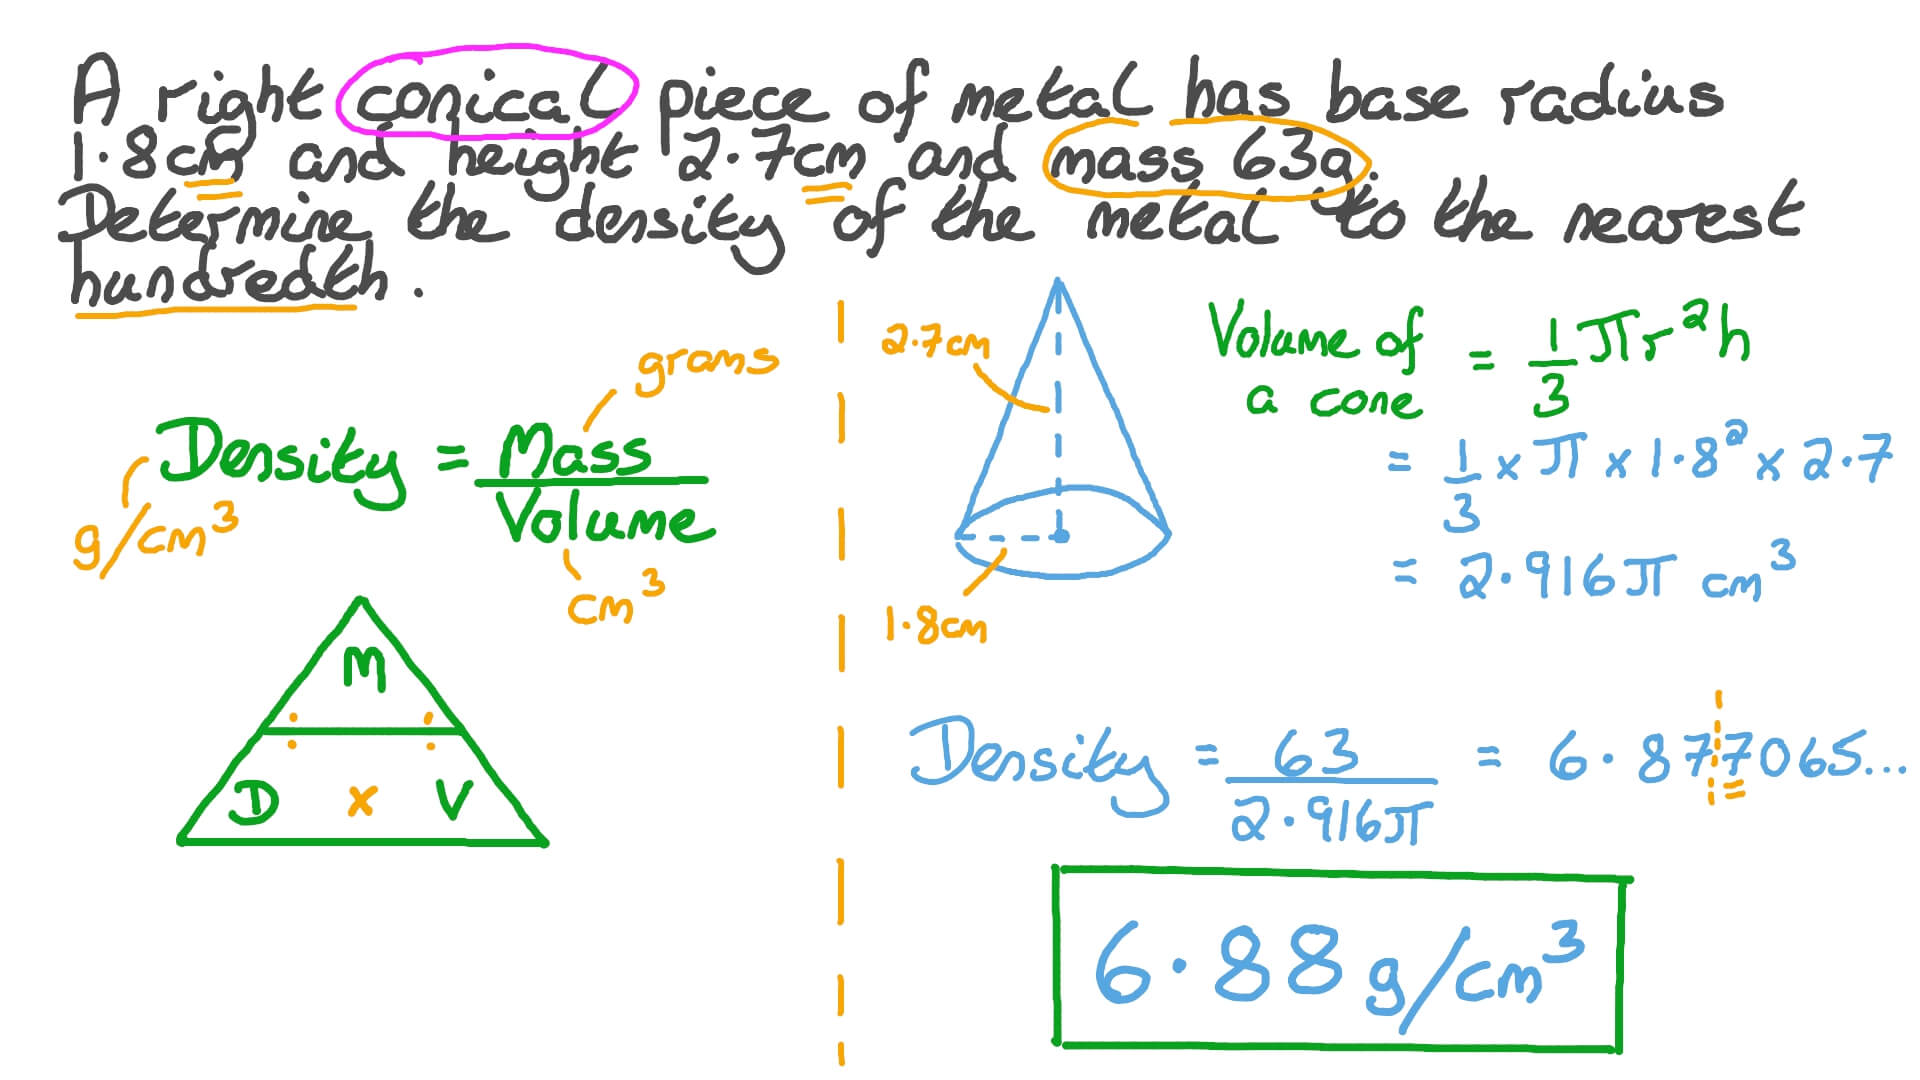 A right conical piece of metal has base radius
1.8cm and height 2.7cm and mass 63g.
Determine the density of the metal to the nearest
hundredth.
grams
Density = Mass / Volume
g/cm³
cm³
M
D x V
2.7cm
1.8cm
Volume of a cone = 1/3 πr²h
= 1/3 x π x 1.8² x 2.7
= 2.916π cm³
Density = 63 / 2.916π = 6.877065...
6.88 g/cm³